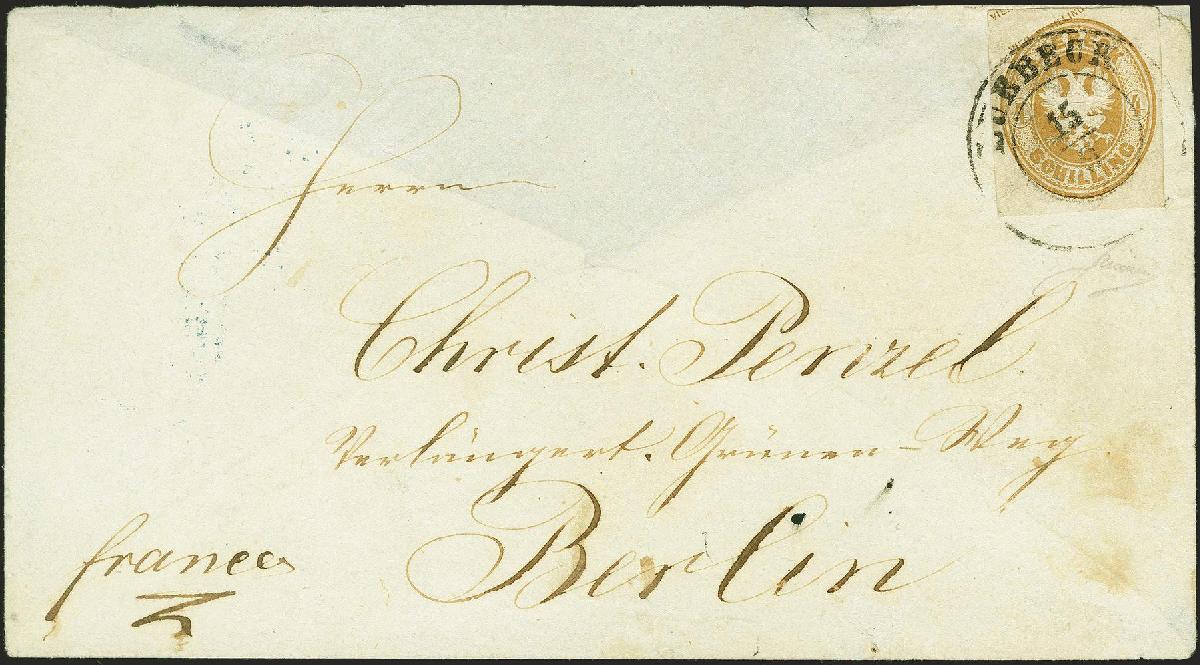 LUBBECK
15
SCHILLING
Herrn
Christ. Penzel
Verlängert. Grünen-Weg
Berlin
franco